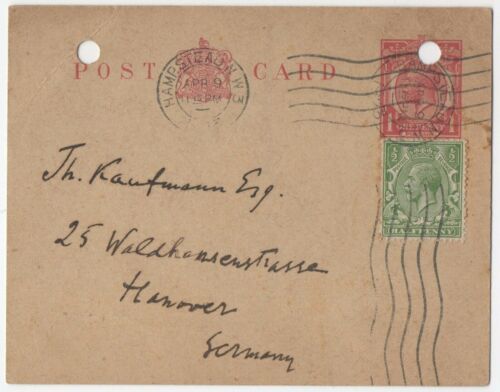 POST CARD
HAMPSTEAD. N.W.3
APR 9
PM
ONE PENNY
½ ½
HALFPENNY
Th. Kaufmann Esq.
25 Waldhausenstrasse
Hanover
Germany